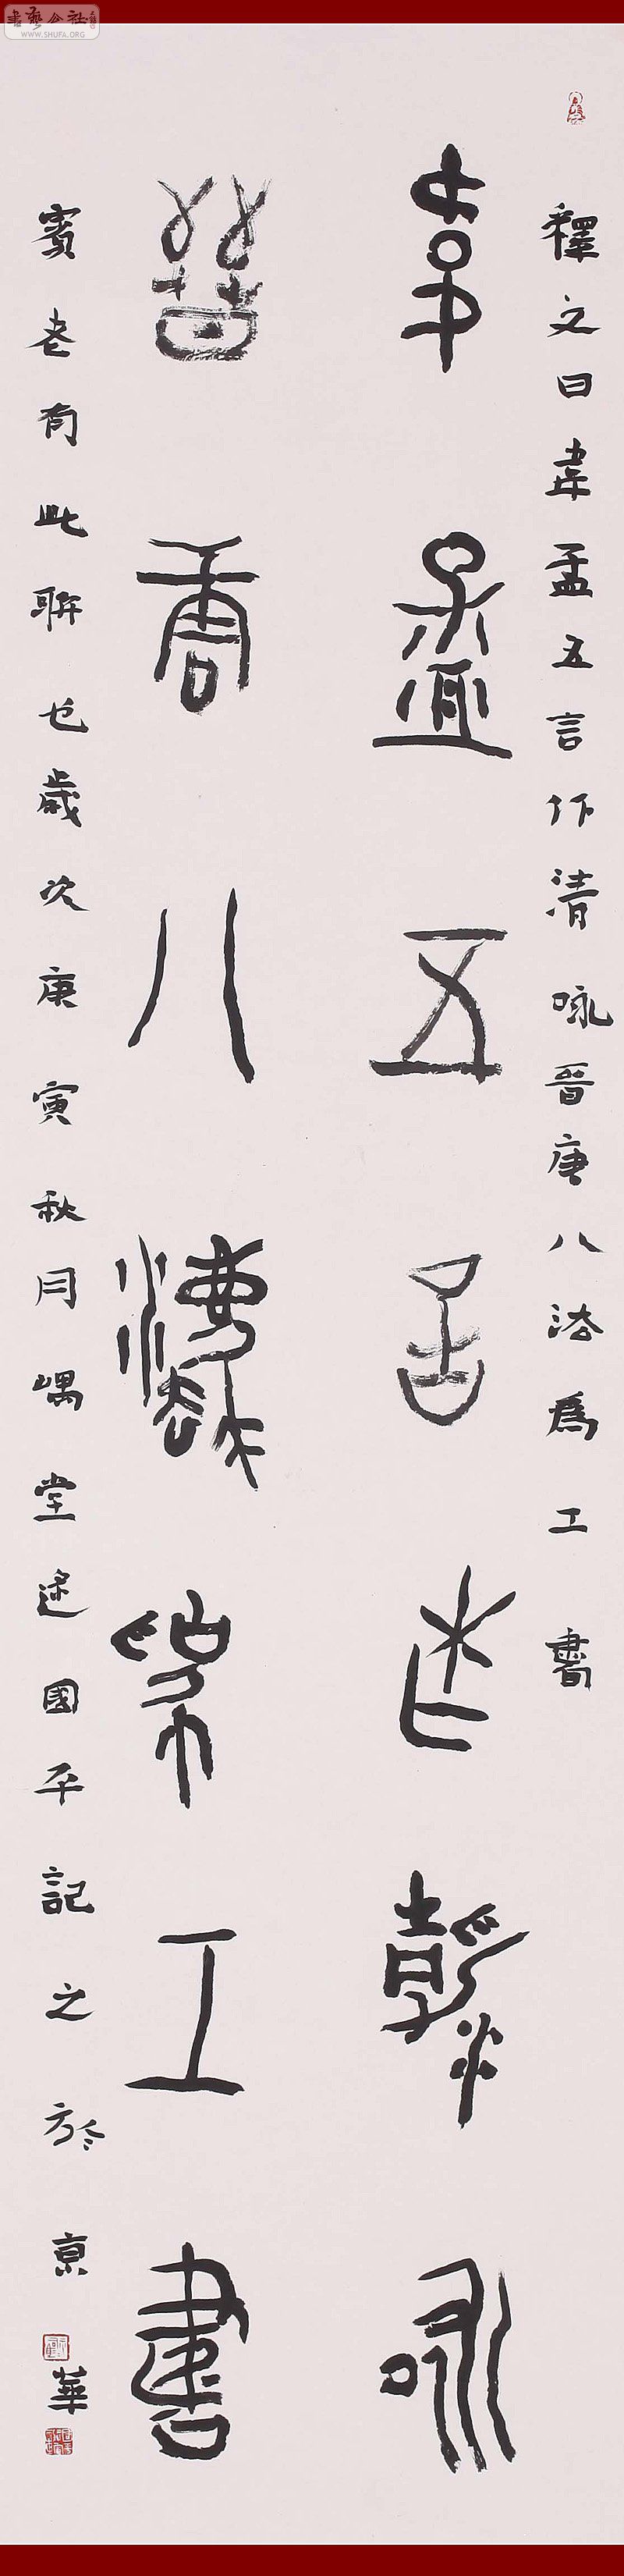 書藝公社
WWW.SHUFA.ORG
釋文曰韋孟五言作清咏晉唐八法為工書
韋孟五言作清咏
晉唐八法為工書
賓老有此聯也歲次庚寅秋月嵎堂逆國平記之於京華